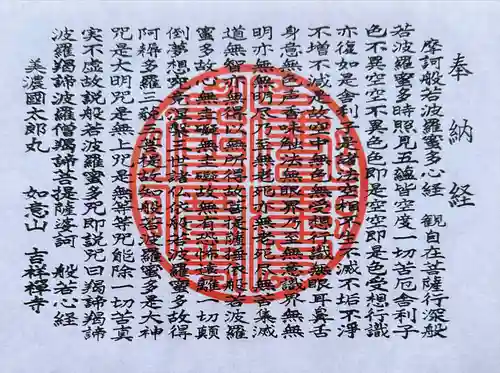 奉納経
摩訶般若波羅蜜多心経 観自在菩薩行深般
若波羅蜜多時照見五蘊皆空度一切苦厄舎利子
色不異空空不異色色即是空空即是色受想行識
亦復如是舎利子是諸法空相不生不滅不垢不浄
不増不減是故空中無色無受想行識無眼耳鼻舌
身意無色声香味触法無眼界乃至無意識界無無
明亦無無明尽乃至無老死亦無老死尽無苦集滅
道無智亦無得以無所得故菩提薩埵依般若波羅
蜜多故心無罣礙無罣礙故無有恐怖遠離一切顛
倒夢想究竟涅槃三世諸仏依般若波羅蜜多故得
阿耨多羅三藐三菩提故知般若波羅蜜多是大神
咒是大明咒是無上咒是無等等咒能除一切苦真
実不虚故説般若波羅蜜多咒即説咒曰羯諦羯諦
波羅羯諦波羅僧羯諦菩提薩婆訶 般若心経
美濃國太郎丸 如意山 吉祥禅寺